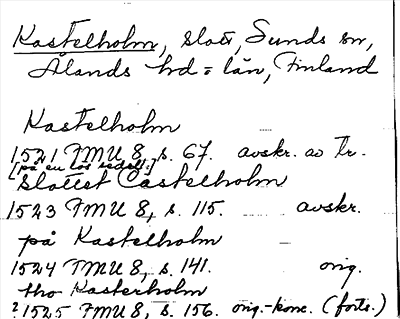 Kastelholm, slott, Sunds sn,
Ålands hd o län, Finland
Kastelholm
1521 FMU 8, s. 67. avskr. av Tr.
[på en lös sedel:]
Slottet Castelholm
1523 FMU 8, s. 115. avskr.
på Kastelholm
1524 FMU 8, s. 141. orig.
tho Kasterholm
?1525 FMU 8, s. 156. orig.-konc. (forts.)